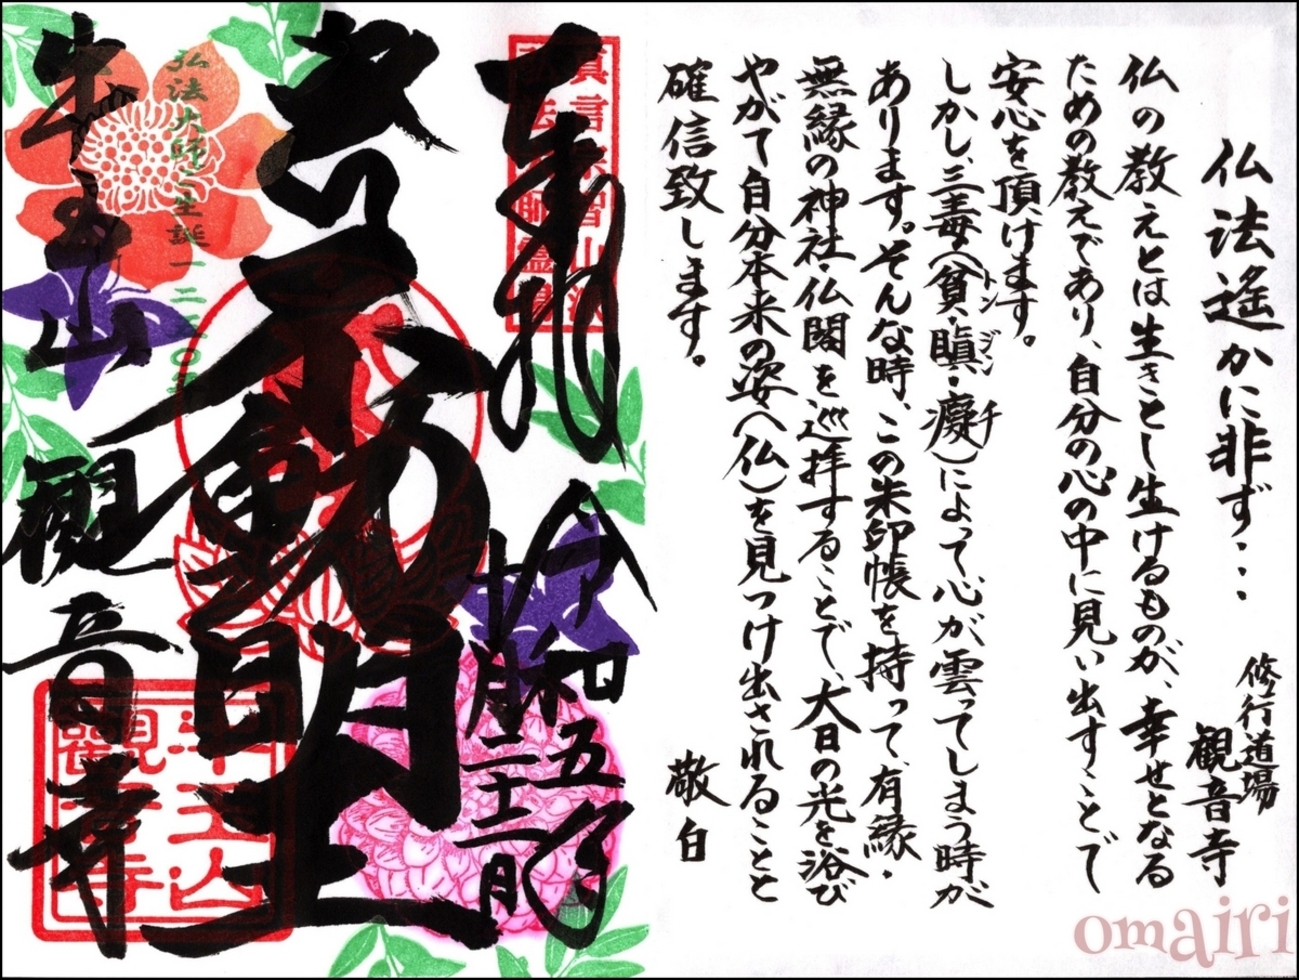 仏法遙かに非ず・・・
修行道場
観音寺
仏の教えとは生きとし生けるものが、幸せとなる
ための教えであり、自分の心の中に見い出すことで
安心を頂けます。
しかし、三毒(貧・瞋・癡)によって心が雲ってしまう時が
トン ジン チ
あります。そんな時、この朱印帳を持って、有縁・
無縁の神社・仏閣を巡拝することで、大日の光を浴び
やがて自分本来の姿(仏)を見つけ出されることと
確信致します。
敬白
奉拝
令和五年
十月二十二日
不動明王
弘法大師ご生誕一二五〇年
牛王山
観音寺
牛王山
観音寺
omairi